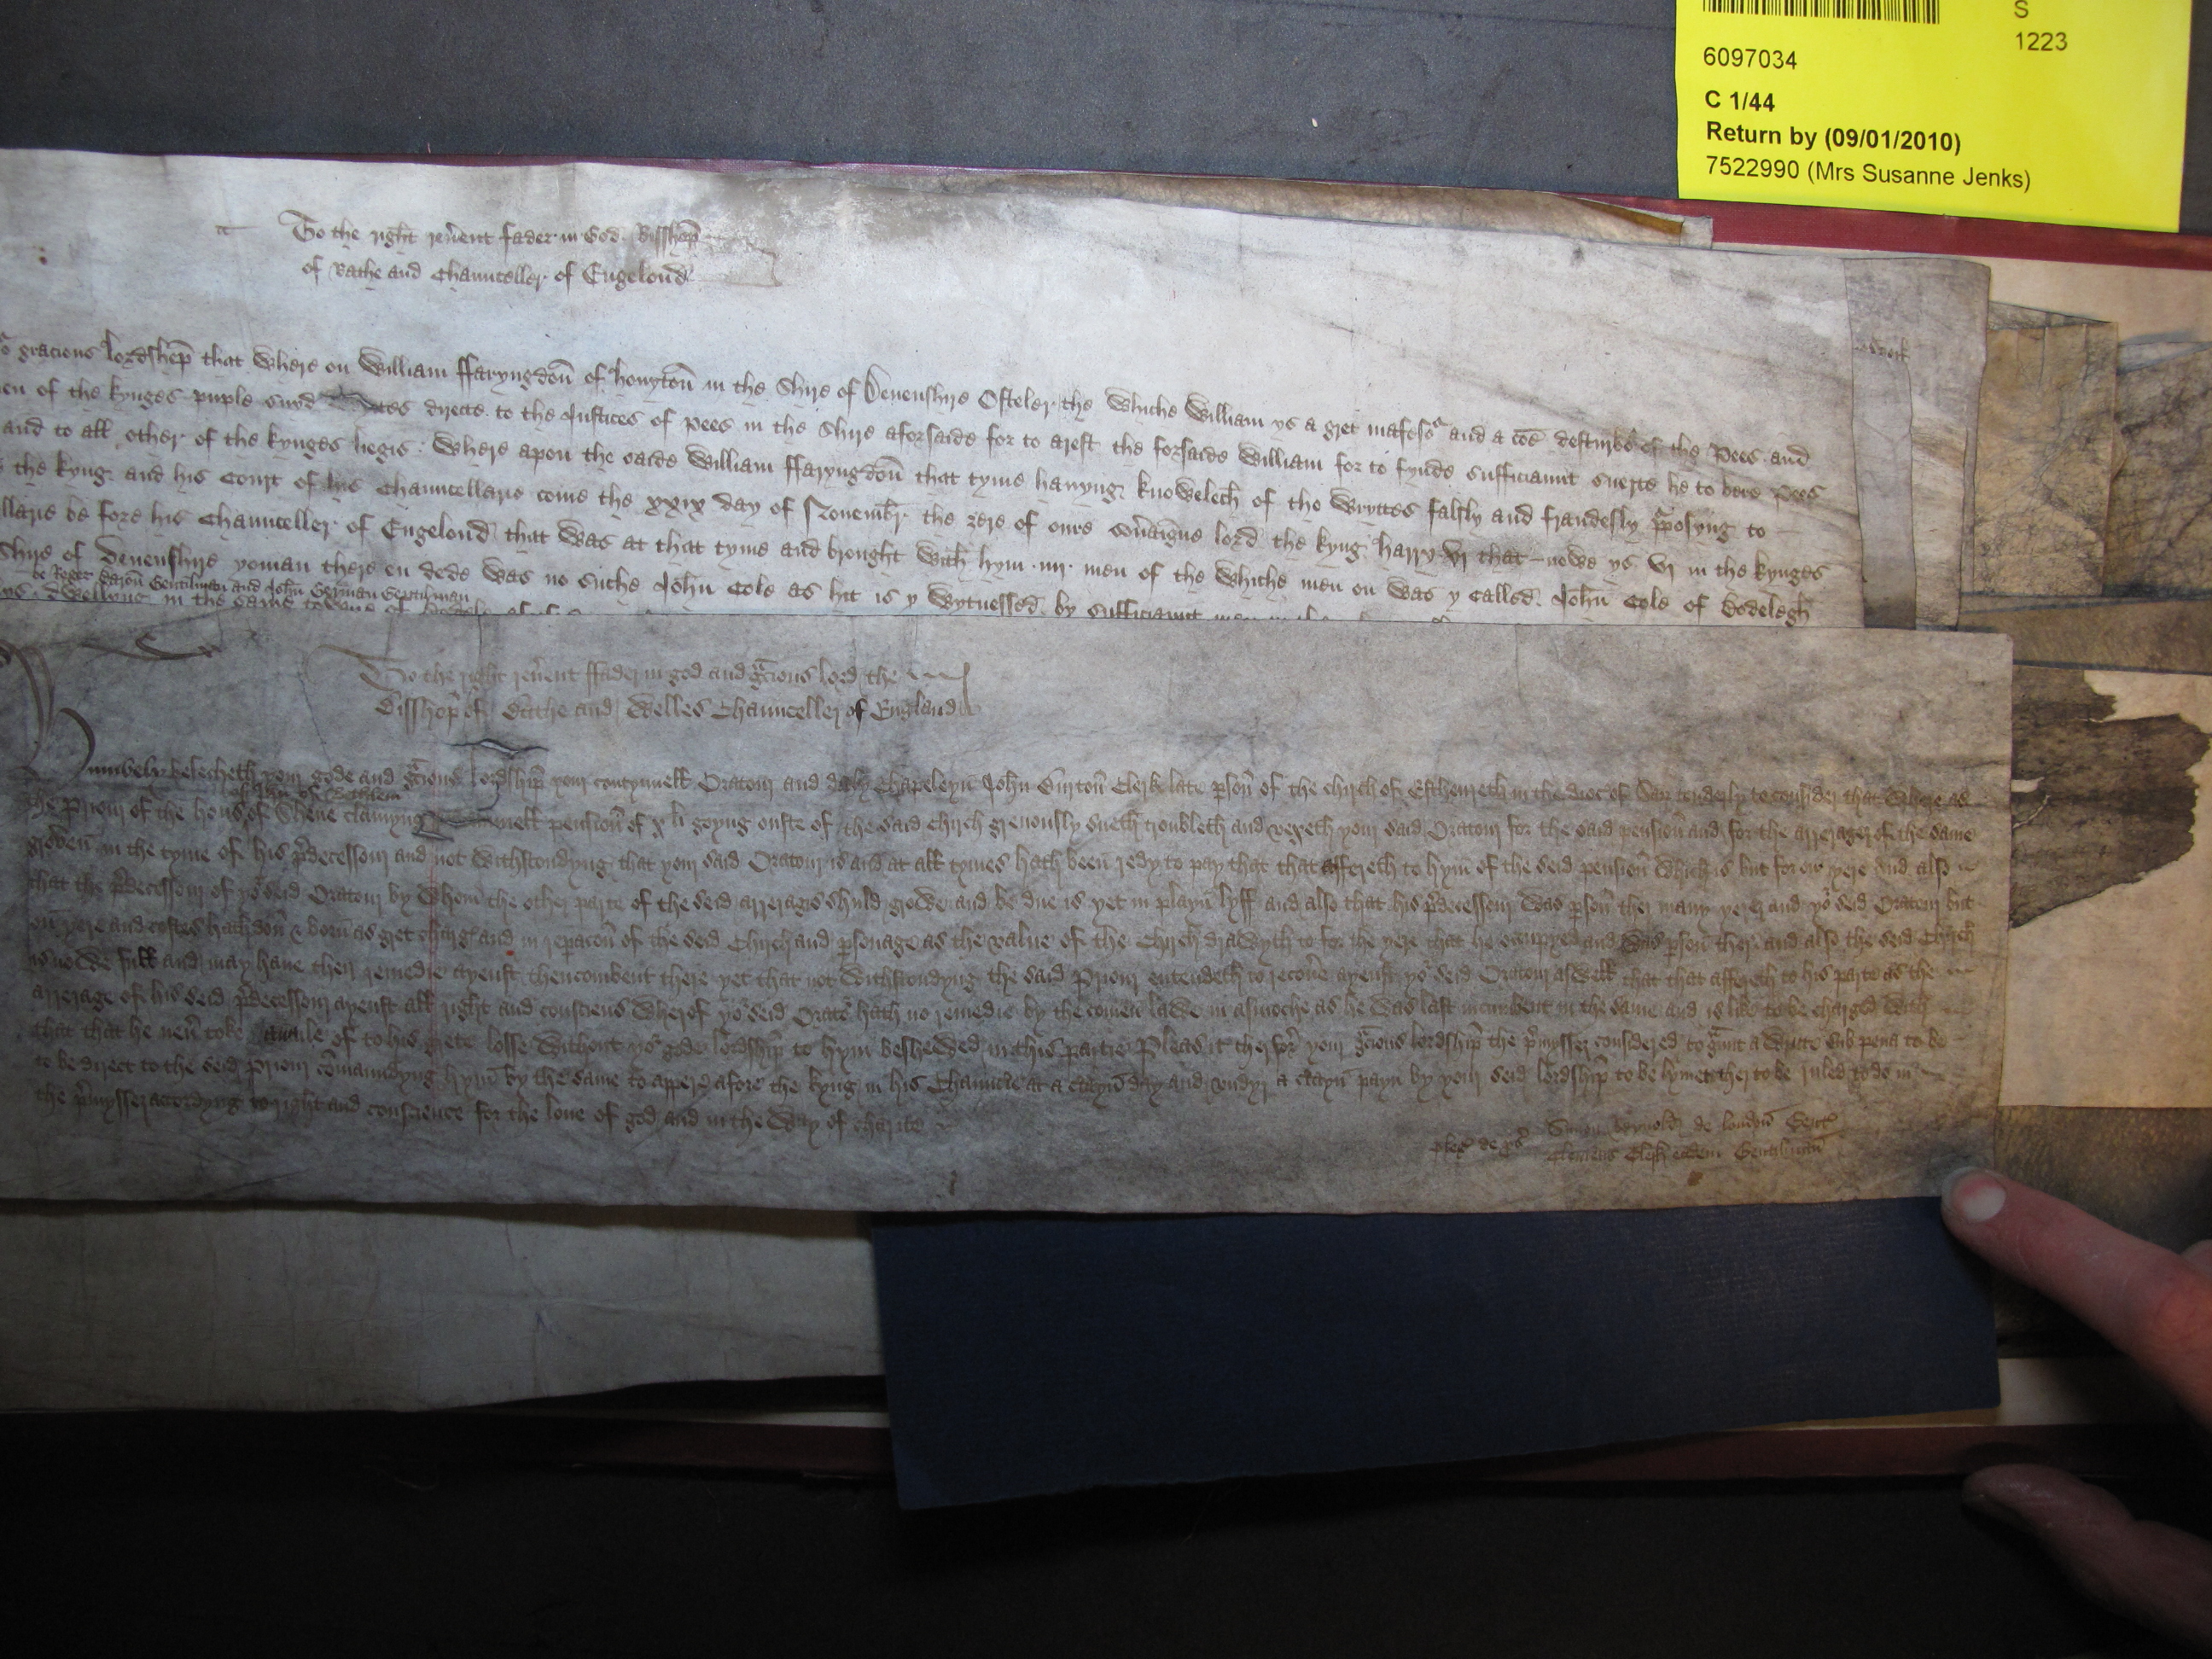 S
1223
6097034
C 1/44
Return by (09/01/2010)
7522990 (Mrs Susanne Jenks)
To the right reu̅ent fader in God Bisshop̅
of Bathe and Chaunceller of Engelond
gracious lordshep̅ that where on William ffaryngdon̅ of honyton̅ in the Shire of Deuenshire Osteler the whiche William ys a gret mafesor and a coe̅ desturber of the Pees and
en of the kynges puple directe to the Justices of Pees in the Shire aforsaide for to arest the forsaide William for to fynde sufficiaunt suerte he to bere Pees
and to all other of the kynges liegis Where apon the saide William ffaryngdon̅ that tyme hauyng knowelech of the wryttes falsly and fraudesly p̅posyng to
the kyng and his Court of his Chauncellarie come the xxix day of Nouembr̅ the zere of oure sou̅aigne lord the kyng Harry vj that nowe ys vj in the kynges
llarie be fore his Chaunceller of Engelond that was at that tyme and brought with hym iiij men of the whiche men on was y called John̅ Cole of Bodelegh
Shire of Deuenshire yoman there en dede was no suche John̅ Cole as hit is y wytnessed by sufficiaunt men
be Roger Baron̅ Gentilman and John̅ German Gentilman
dwellyng in the same towne of
To the right reu̅ent ffader in god and gr̅acious lord the
Bisshop̅ of Bathe and Welles Chaunceller of England
Humbely besecheth your gode and gr̅cious lordship̅ your contynuell Oratour and daily Chapeleyn̅ John̅ Burton̅ Clerk late p̅son̅ of the chirch of Esthenreth in the dioc of Sar̅ tenderly to consider that where as
of Jh̅u of Bethleem
the Priour of the hous of Shene claymyng pension̅ of x li goyng oute of the said chirch greuously sueth troubleth and vexeth your said Oratour for the said pension̅ and for the arrerages of the same
growen̅ in the tyme of his p̅decessour and not withstondyng that your said Oratour is and at all tymes hath been̅ redy to pay that that affereth to hym̅ of the seid pension̅ which is but for on yere And also
that the p̅decessour of yor seid Oratour by whom̅ the other parte of the seid arrerages shuld growe and be due is yet in playn̅ lyff and also that his p̅decessour was p̅son̅ ther many yeres and yor seid Oratour but
on̅ yere and costes hath don̅ & born̅ as gret charge and in repacon̅ of the seid Chirch and p̅sonage as the value of the Chirch drawyth to for the yere that he occupyed and was p̅son̅ ther and also the seid Chirch
is nowe full and may haue ther remedie ayenst thencombent there yet that not withstondyng the said Priour entendeth to recou̅e ayenst yor seid Oratour aswell that that affereth to his parte as the
arrerage of his seid p̅decessour ayenst all right and consciens Wherof yor seid Orator hath no remedie by the comen̅ lawe in asmoche as he was last incumbent in the same and is like to be charged with
that that he neu̅ toke avauile of to his grete losse without yor gode lordship̅ to hym̅ be shewed in this partie Pleas it therfor̅ your gr̅cious lordship̅ the p̅mysses considered to gr̅unt a writte sub pena to be
to be direct to the seid Priour co̅maundyng hym̅ by the same to apper̅ afore the kyng in his Chauncie at a c̅tayn̅ day and vndyr a c̅tayn̅ payn̅ by your seid lordship̅ to be lymet ther to be ruled gode in
the p̅mysses accordyng to right and conscience for the loue of god and in the way of charite
pleg̅ de p̅s̅
Simon Reynold de london̅ Gent̅
Clemens Clerk eadem Gentilman̅